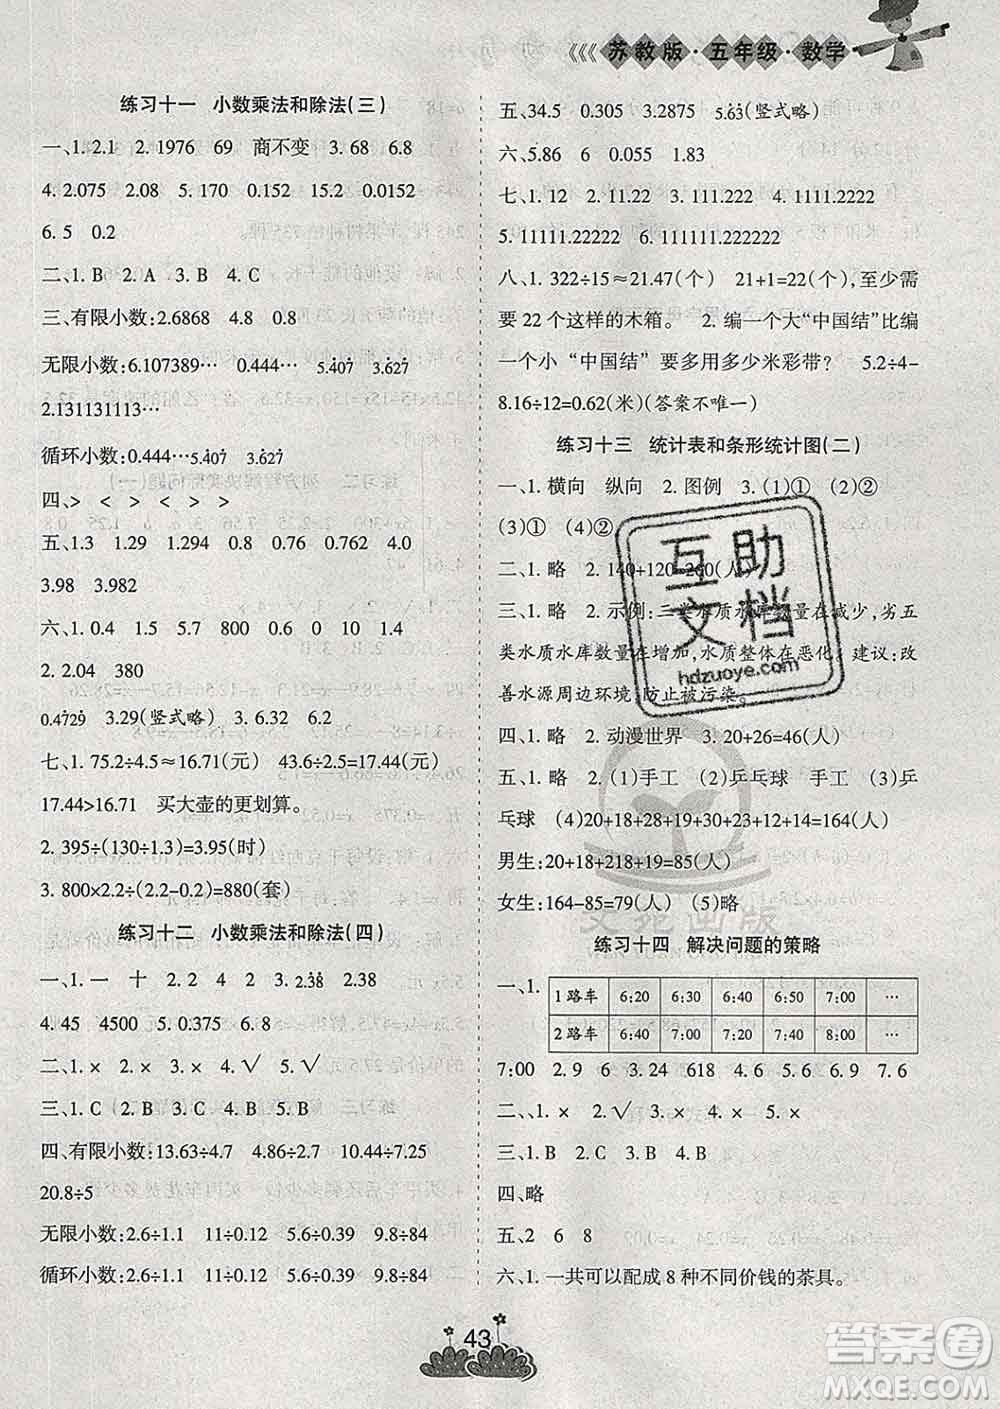 苏教版·五年级·数学
练习十一 小数乘法和除法(三)
一、1.2.1 2.1976 69 商不变 3.68 6.8
4.2.075 2.08 5.170 0.152 15.2 0.0152
6.5 0.2
二、1.B 2.A 3.B 4.C
三、有限小数:2.6868 4.8 0.8
无限小数:6.107389… 0.444… 5.4̇07̇ 3.6̇27̇
2.131131113…
循环小数:0.444… 5.4̇07̇ 3.6̇27̇
四、> < > < > >
五、1.3 1.29 1.294 0.8 0.76 0.762 4.0
3.98 3.982
六、1.0.4 1.5 5.7 800 0.6 0 10 1.4
2.2.04 380
0.4̇729̇ 3.29(竖式略) 3.6.32 6.2
七、1.75.2÷4.5≈16.71(元) 43.6÷2.5=17.44(元)
17.44>16.71 买大壶的更划算。
2.395÷(120-20)=3.95(时)
3.800×2.2÷(2.2-0.2)=880(套)
练习十二 小数乘法和除法(四)
一、1.一 十 2.2 4 2 3.2.3̇8̇ 2.38
4.45 4500 5.0.375 6.8
二、1.× 2.× 3.× 4.√ 5.√
三、1.C 2.B 3.C 4.B 5.B
四、有限小数:13.63÷4.7 4.86÷2.7 10.44÷7.25
20.8÷5
无限小数:2.6÷1.1 11÷0.9 5.6÷0.39 9.84÷84
循环小数:2.6÷1.1 11÷0.9 5.6÷0.39 9.84÷84
五、34.5 0.305 3.2875 5.6̇3̇(竖式略)
六、5.86 6 0.055 1.83
七、1.12 2.11.22 3.111.222 4.1111.2222
5.11111.22222 6.111111.222222
八、1.322÷15≈21.47(个) 21+1=22(个),至少需
要22个这样的木箱。 2.编一个大“中国结”比编
一个小“中国结”要多用多少米彩带? 5.2÷4-
8.16÷12=0.62(米)(答案不唯一)
练习十三 统计表和条形统计图(二)
一、1.横向 纵向 2.图例 3.(1)① (2)②
(3)① (4)②
二、1.略 2.140+120=260(人)
三、1.略 2.示例:三类水质水库数量在减少,劣五
类水质水库数量在增加,水质整体在恶化;建议:改
善水源周边环境,防止被污染。
四、1.略 2.动漫世界 3.20+26=46(人)
五、1.略 2.(1)手工 (2)乒乓球 手工 (3)乒
乓球 (4)20+18+28+19+30+23+12+14=164(人)
男生:20+18+218+19=85(人)
女生:164-85=79(人) (5)略
练习十四 解决问题的策略
一、1.
1路车 6:20 6:30 6:40 6:50 7:00 …
2路车 6:20 6:40 7:00 7:20 8:00 …
7:00 2.9 6 3.24 4.18 5.16 6.9 7.6
二、1.× 2.√ 3.× 4.×
三、1.B 2.C 3.B 4.B
四、略
五、2 6 8
六、1.一共可以配成8种不同价钱的茶具。
43
互助文档
hdzuoye.com
文苑出版
答案圈
MXQE.COM